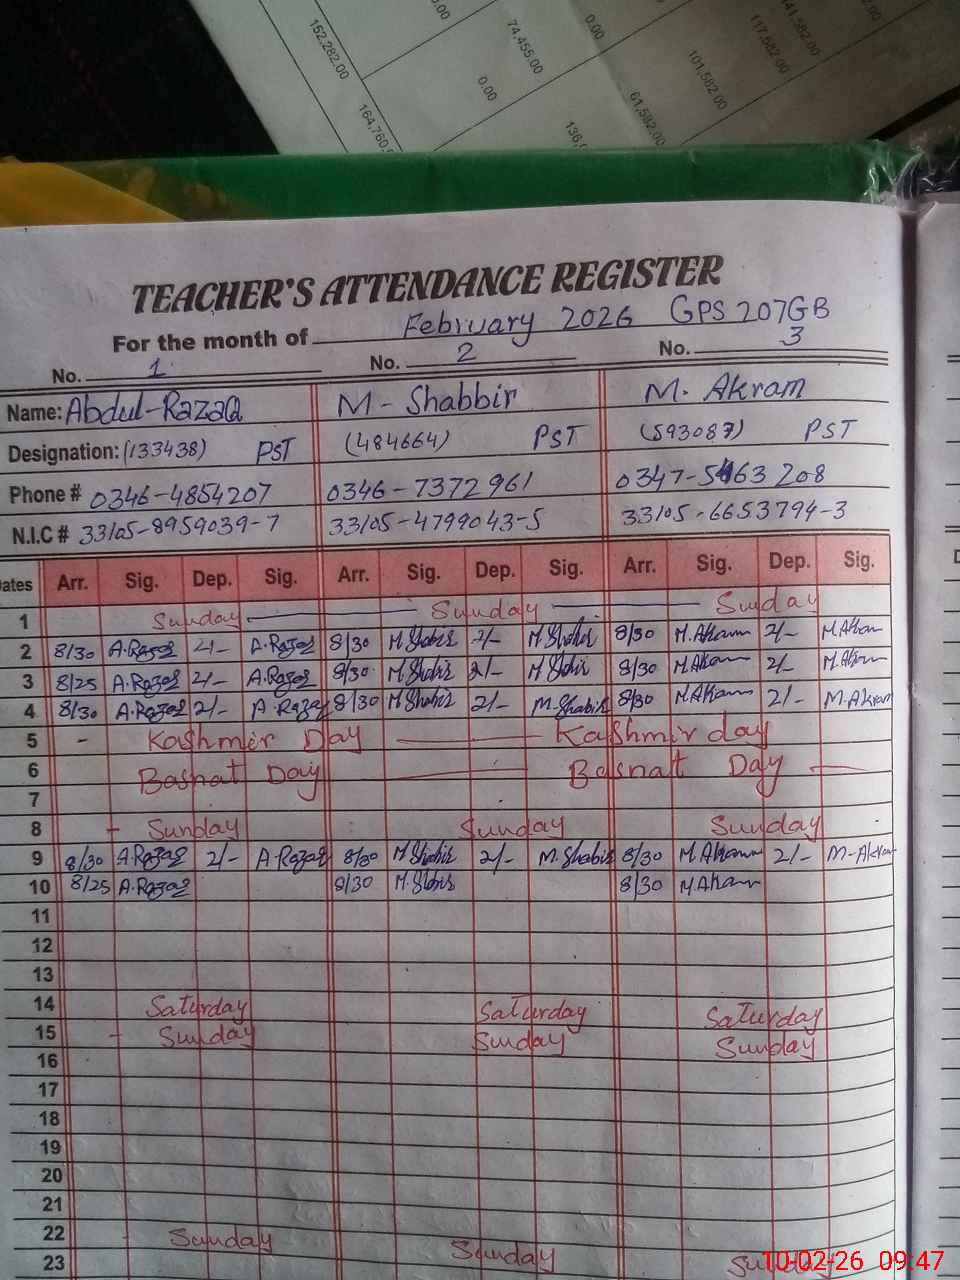 152,282.00
164,760.
0.00
74,455.00
0.00
0.00
136,
61,582.00
101,582.00
117,582.00
141,582.00
TEACHER'S ATTENDANCE REGISTER
For the month of February 2026 GPS 207GB
No. 1 No. 2 No. 3
Name: Abdul-RazaQ M-Shabbir M. Akram
Designation: (133438) PST (484664) PST (593087) PST
Phone # 0346-4854207 0346-7372961 0347-5463208
N.I.C # 33105-8959039-7 33105-4799043-5 33105-6653794-3
ates Arr. Sig. Dep. Sig. Arr. Sig. Dep. Sig. Arr. Sig. Dep. Sig.
1 Sunday Sunday Sunday
2 8/30 A.Razaq 2/- A.Razaq 8/30 M.Shabir 2/- M.Shabir 8/30 M.Akram 2/- M.Akram
3 8/25 A.Razaq 2/- A.Razaq 8/30 M.Shabir 2/- M.Shabir 8/30 M.Akram 2/- M.Akram
4 8/30 A.Razaq 2/- A.Razaq 8/30 M.Shabir 2/- M.Shabir 8/30 M.Akram 2/- M.Akram
5 - Kashmir Day Kashmir day
6 Basnat Day Basnat Day
7
8 - Sunday Sunday Sunday
9 8/30 A.Razaq 2/- A.Razaq 8/30 M.Shabir 2/- M.Shabir 8/30 M.Akram 2/- M-Akram
10 8/25 A.Razaq 8/30 M.Shabir 8/30 M.Akram
11
12
13
14 Saturday Saturday Saturday
15 - Sunday Sunday Sunday
16
17
18
19
20
21
22 - Sunday Sunday Sunday
23
10-02-26 09:47